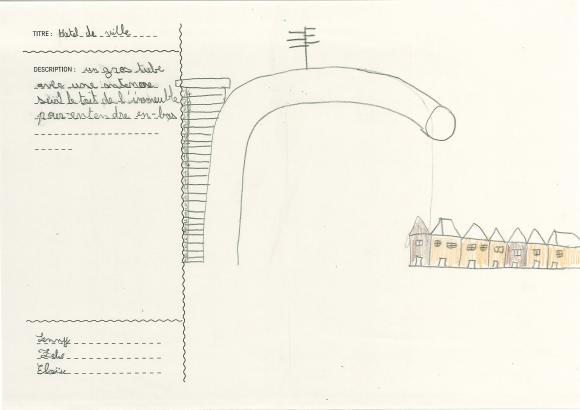 TITRE : Hotel de ville
DESCRIPTION : un gros tube
avec une antenne
seul le toit de l'immeuble
pour entendre en-bas
Lenny
Zele
Eloïse